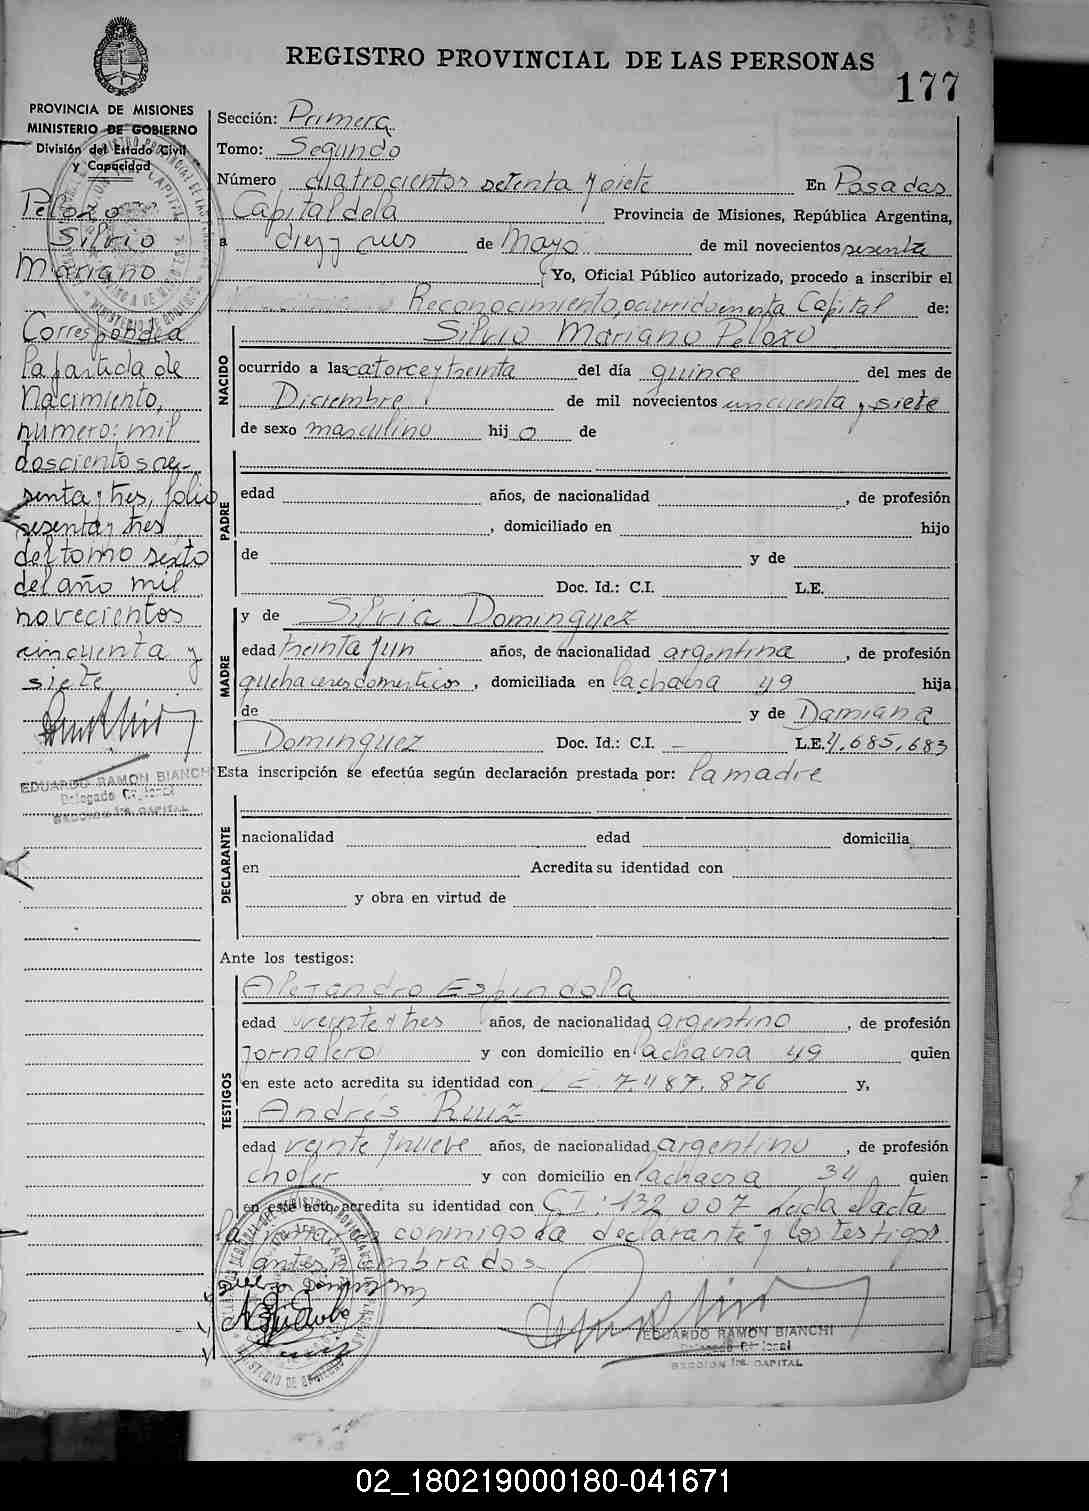 REGISTRO PROVINCIAL DE LAS PERSONAS
177
PROVINCIA DE MISIONES
MINISTERIO DE GOBIERNO
División del Estado Civil
y Capacidad
Pelozo
Silvio
Mariano
Corresponde a
la partida de
Nacimiento,
número: mil
doscientos se-
senta y tres, folio
sesenta y tres
del tomo sexto
del año mil
novecientos
cincuenta y
siete
EDUARDO RAMON BIANCHI
Delegado Regional
SECCION 1ra. CAPITAL
Sección: Primera
Tomo: Segundo
Número cuatrocientos setenta y siete En Posadas
Capital de la Provincia de Misiones, República Argentina,
a diez y seis de Mayo de mil novecientos sesenta
Yo, Oficial Público autorizado, procedo a inscribir el
Reconocimiento, ocurrido en esta Capital de:
Silvio Mariano Pelozo
NACIDO
ocurrido a las catorce y treinta del día quince del mes de
Diciembre de mil novecientos cincuenta y siete
de sexo masculino hijo de
PADRE
edad años, de nacionalidad , de profesión
, domiciliado en hijo
de y de
Doc. Id.: C.I. L.E.
MADRE
y de Silvia Dominguez
edad treinta y un años, de nacionalidad argentina , de profesión
quehaceres domésticos , domiciliada en la chacra 49 hija
de y de Damiana
Dominguez Doc. Id.: C.I. - L.E. 4.685.683
Esta inscripción se efectúa según declaración prestada por: la madre
DECLARANTE
nacionalidad edad domicilia
en Acredita su identidad con
y obra en virtud de
Ante los testigos:
TESTIGOS
Alejandro Espindola
edad veinte y tres años, de nacionalidad argentino , de profesión
jornalero y con domicilio en la chacra 49 quien
en este acto acredita su identidad con L.E. 7.487.876 y,
Andrés Ruiz
edad veinte y nueve años, de nacionalidad argentino , de profesión
chofer y con domicilio en la chacra 34 quien
en este acto acredita su identidad con CI: 132.007 Leida el acta
la firma conmigo la declarante y los testigos
antes nombrados.
EDUARDO RAMON BIANCHI
Delegado Regional
SECCION 1ra. CAPITAL
02_180219000180-041671